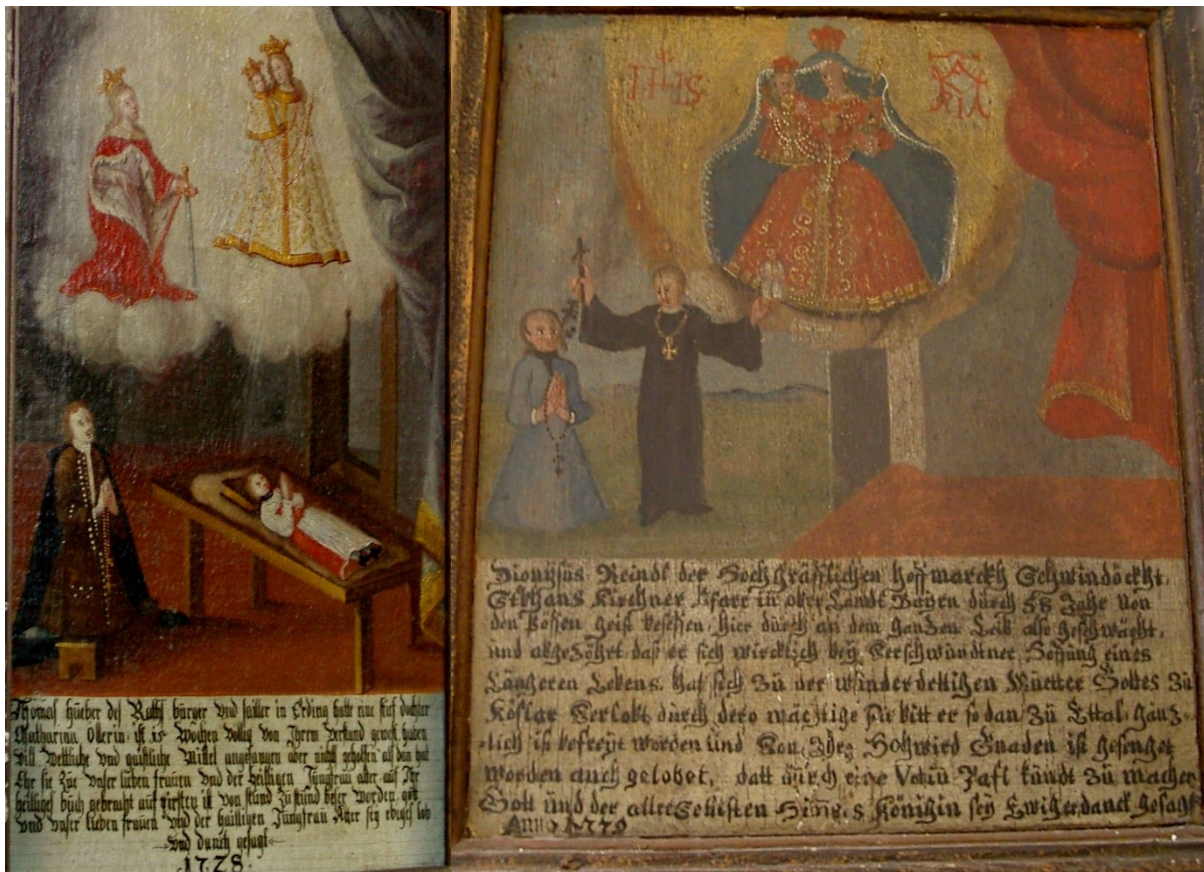 Thomas Hueber des Raths bürger vnd satler in Erding hatte eine stief dochter
Catharina Ollerin, ist 15 Wochen völlig von Ihrem Verstand gewest, haben
Vill Weltliche und geistliche Mittel angefangen aber nichts geholfen als dan hat
Ehr sie Zue vnser lieben frauen vnd der heilligen Jungfrau alter auf Ihr
heiliges buch gebracht auf von stund Zu stund beser worden, gott
vnd vnser lieben frauen vnd der heilligen Jungfrau Alter sey ebiges lob
vnd danck gesagt
1728
IHS
Dionÿsus Reindl der Hochgräfflichen hoffmarckh Schwindöckht,
Stephans Kirchner Pfarr in ober Landt Bayrn durch 58 Jahr von
den bössen geist besessen, hier durch an dem ganzen Leib also geschwächt,
und abgezöhrt, daß er sich wircklich bey Verschwundtner Hoffung eines
Längeren Lebens, hat sich Zu der wunderdettigen Muetter Gottes Zu
Köslar Verlobt durch dero mächtige Fir bitt er so dan Zu Ettal gänz
lich ist befreyt worden und Hohwird Gnaden ist gesenget
worden auch gelobet, daß durch eine Votiu Pafl kündt Zu machen
Gott und der allerseligisten Himels Königin seÿ Ewiger danck gesagt
Anno 1779